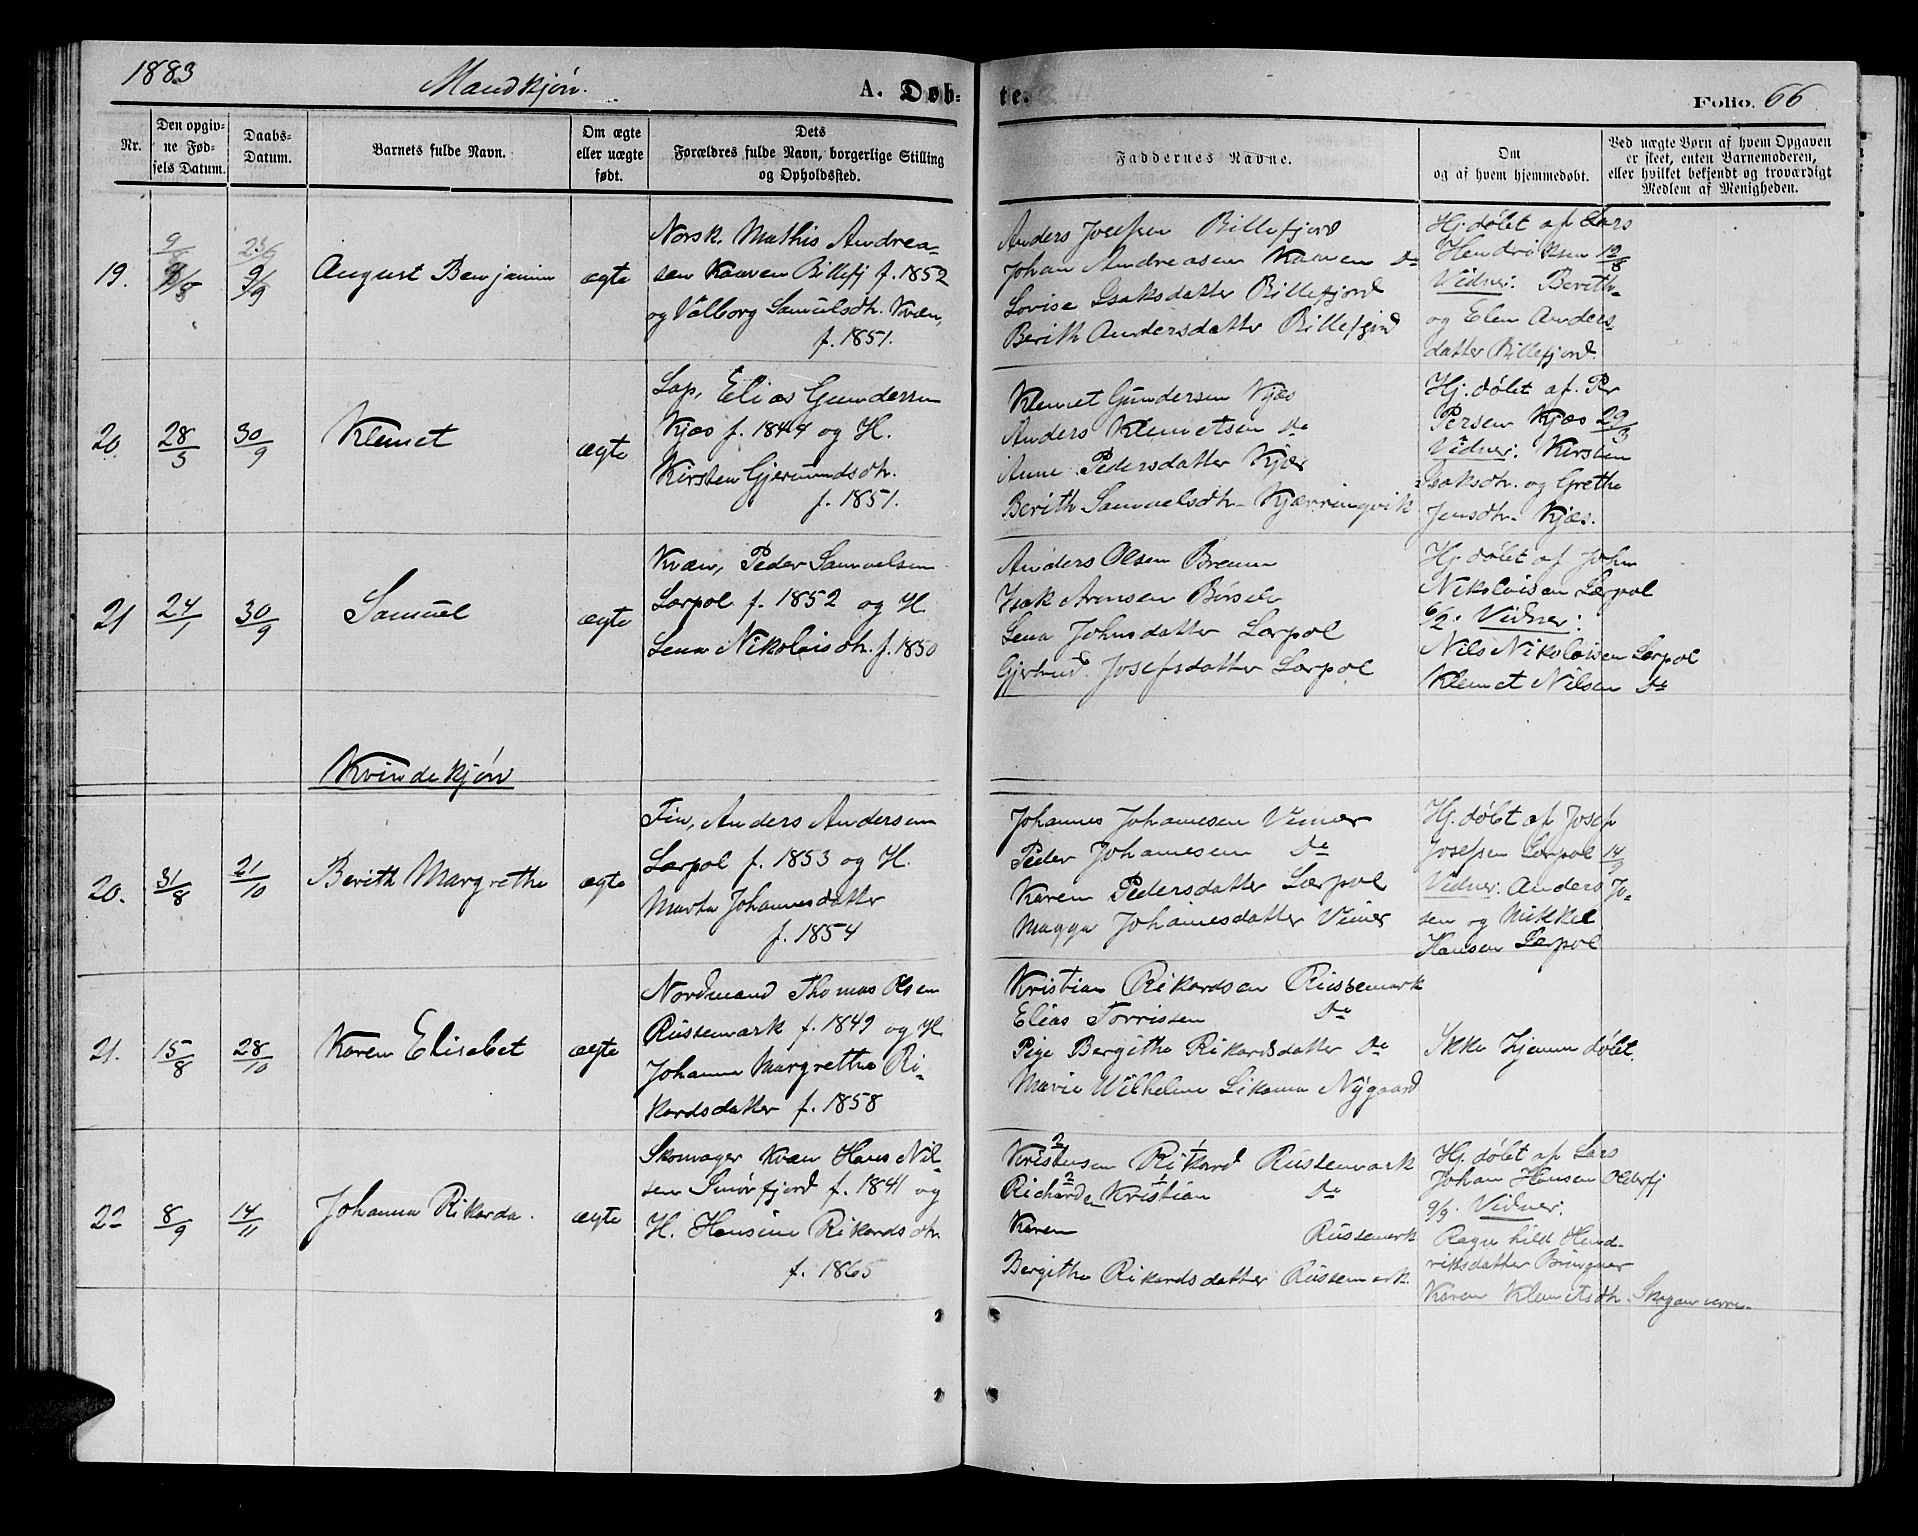 1883
Mandkjøn.
A. Døb-
te.
Folio. 66
Nr.
Den opgiv-
ne Fød-
sels Datum.
Daabs-
Datum.
Barnets fulde Navn.
Om ægte
eller uægte
født.
Dets
Forældres fulde Navn, borgerlige Stilling
og Opholdssted.
Faddernes Navne.
Om
og af hvem hjemmedøbt.
Ved uægte Børn af hvem Opgaven
er skeet, enten Barnemoderen,
eller hvilket bekjendt og troværdigt
Medlem af Menigheden.
19.
9/8
23/9
9/9
August Benjamin
ægte
Norsk. Mathis Andrea-
sen Kaaven Billefj f. 1852
og Valborg Samuelsdtr. Kvæn,
f. 1851.
Anders Josefsen Billefjord
Johan Andreasen Kaaven Do
Lovise Isaksdatter Billefjord
Berith Andersdatter Billefjord
Hj. døbt af Lars
Hendriksen 12/8
Vidner: Berith
og Elen Anders-
datter Billefjord.
20.
28/3
30/9
Klemet
ægte
Lap, Elias Gundersen
Kjæs f. 1844 og H.
Kirsten Gjermundsdtr.
f. 1851.
Klemet Gundersen Kjæs
Anders Klemetsen Do
Anne Pedersdatter Kjæs
Berith Samuelsdtr. Kjærringvik
Hj. døbt af. Per
Persen Kjæs 29/3
Vidner: Kirsten
Isaksdtr. og Grethe
Jensdtr. Kjæs.
21
24/1
30/9
Samuel
ægte
Kvæn, Peder Samuelsen
Lærpol f. 1852 og H.
Lena Nikolaisdtr. f. 1850
Anders Olsen Brenn
Isak Arnesen Børselv
Lena Johnsdatter Lærpol
Gjertrud Josefsdatter Lærpol
Hj. døbt af John
Nikolaisen Lærpol
6/2. Vidner:
Nils Nikolaisen Lærpol
Klemet Nilsen Do
Kvindekjøn
20.
31/8
21/10
Berith Margrethe
ægte
Fin, Anders Andersen
Lærpol f. 1853 og H.
Marta Johannesdatter
f. 1854
Johannes Johannesen Veiner
Peder Johannesen Do
Karen Pedersdatter Lærpol
Magga Johannesdatter Veiner
Hj. døbt af Josef
Josefsen Lærpol 14/9
Vidner: Anders Jo-
sen og Mikkel
Hansen Lærpol
21.
15/8
28/10
Karen Elisabet
ægte
Nordmand Thomas Olsen
Russemark f. 1849 og H
Johanna Margrethe Ri-
kardsdatter f. 1858
Kristian Rikardsen Russemark
Elias Torrissen Do
Pige Bergithe Rikardsdatter Do
Marie Wilhelmine Nygaard
Ikke hjemmedøbt.
22
8/9
14/11
Johanna Rikarda.
ægte
Skomager Kvæn Hans Nil-
sen Smørfjord f. 1841 og
H. Hansine Rikardsdtr.
f. 1865
Kristensen Rikard Russemark
Richard Kristian Do
Karen Russemark
Bergithe Rikardsdatter Russemark.
Hj. døbt af Lars
Johan Hansen Olderfj
9/9. Vidner:
Ragnhild Hend-
riksdatter
Karen Klemetsdtr. Skoganvarre